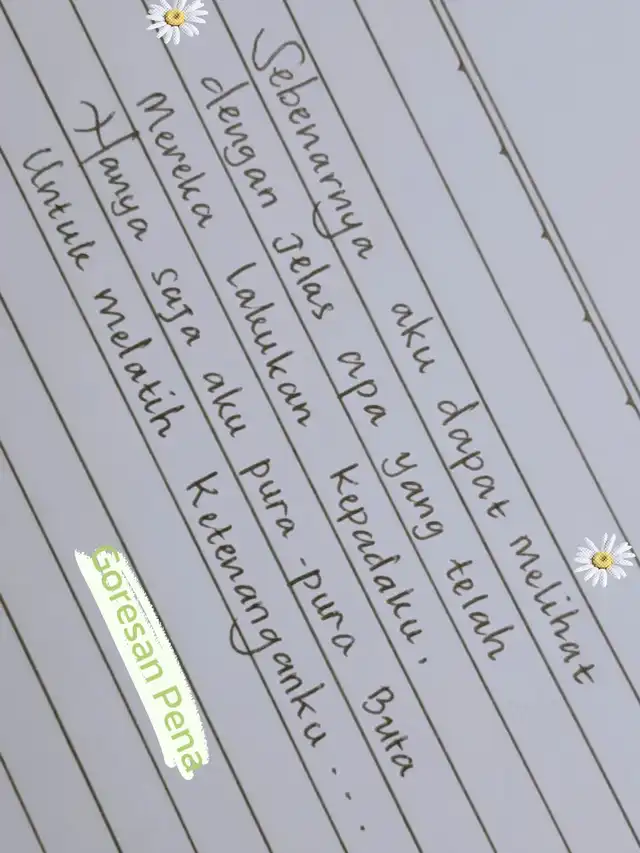 Sebenarnya aku dapat melihat
dengan jelas apa yang telah
Mereka lakukan kepadaku.
Hanya saja aku pura-pura Buta
Untuk melatih Ketenanganku....
Goresan Pena